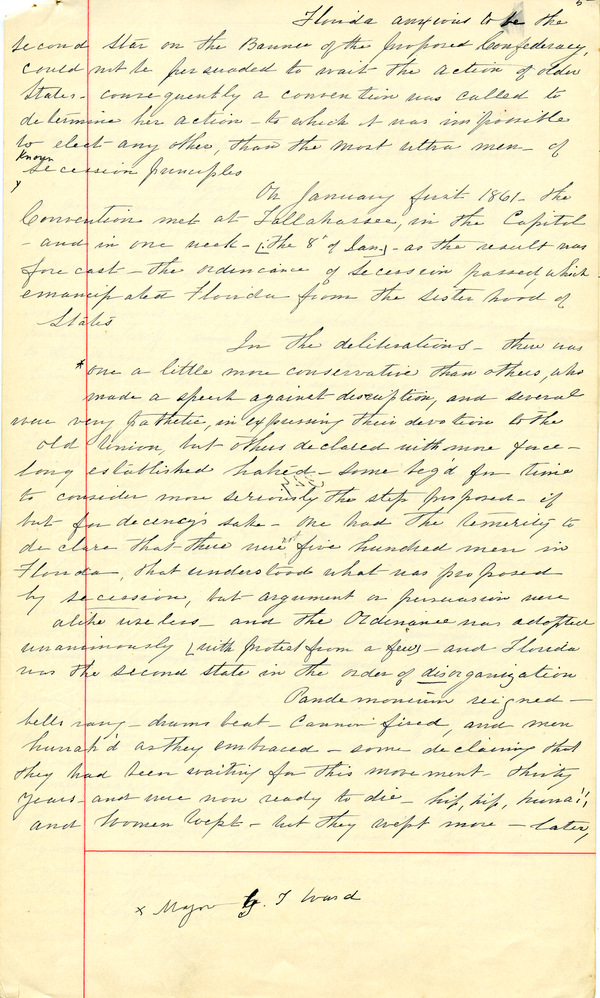 5
Florida anxious to be the
second star on the Banner of the proposed Confederacy,
could not be persuaded to wait the action of older
States - consequently a convention was called to
determine her action - to which it was impossible
to elect any other, than the most ultra men - of
known
secession principles
On January first 1861 - the
Convention met at Tallahassee, in the Capitol
- and in one week - [the 8" of Jan.] - as the result was
fore cast - the ordinance of secession passed, which
emancipated Florida from the sister hood of
States
In the deliberations - there was
* one a little more conservative than others, who
made a speech against disruption, and several
were very pathetic, in expressing their devotion to the
old Union, but others declared with more force -
long established hatred - some beg'd for time
to consider more seriously the step proposed - if
but for decency's sake - one had the temerity to
declare that there were not five hundred men in
Florida, that understood what was proposed
by secession, but argument or persuasion were
alike useless - and the Ordinance was adopted
unanimously [with protest from a few] - and Florida
was the second state in the order of disorganization
Pandemonium reigned -
bells rang - drums beat - Cannon fired, and men
hurrah'd as they embraced - some declaring that
they had been waiting for this movement - thirty
years - and were now ready to die - hip, hip, hurra!!,
and Women wept - but they wept more - later,
x Major G. T Ward